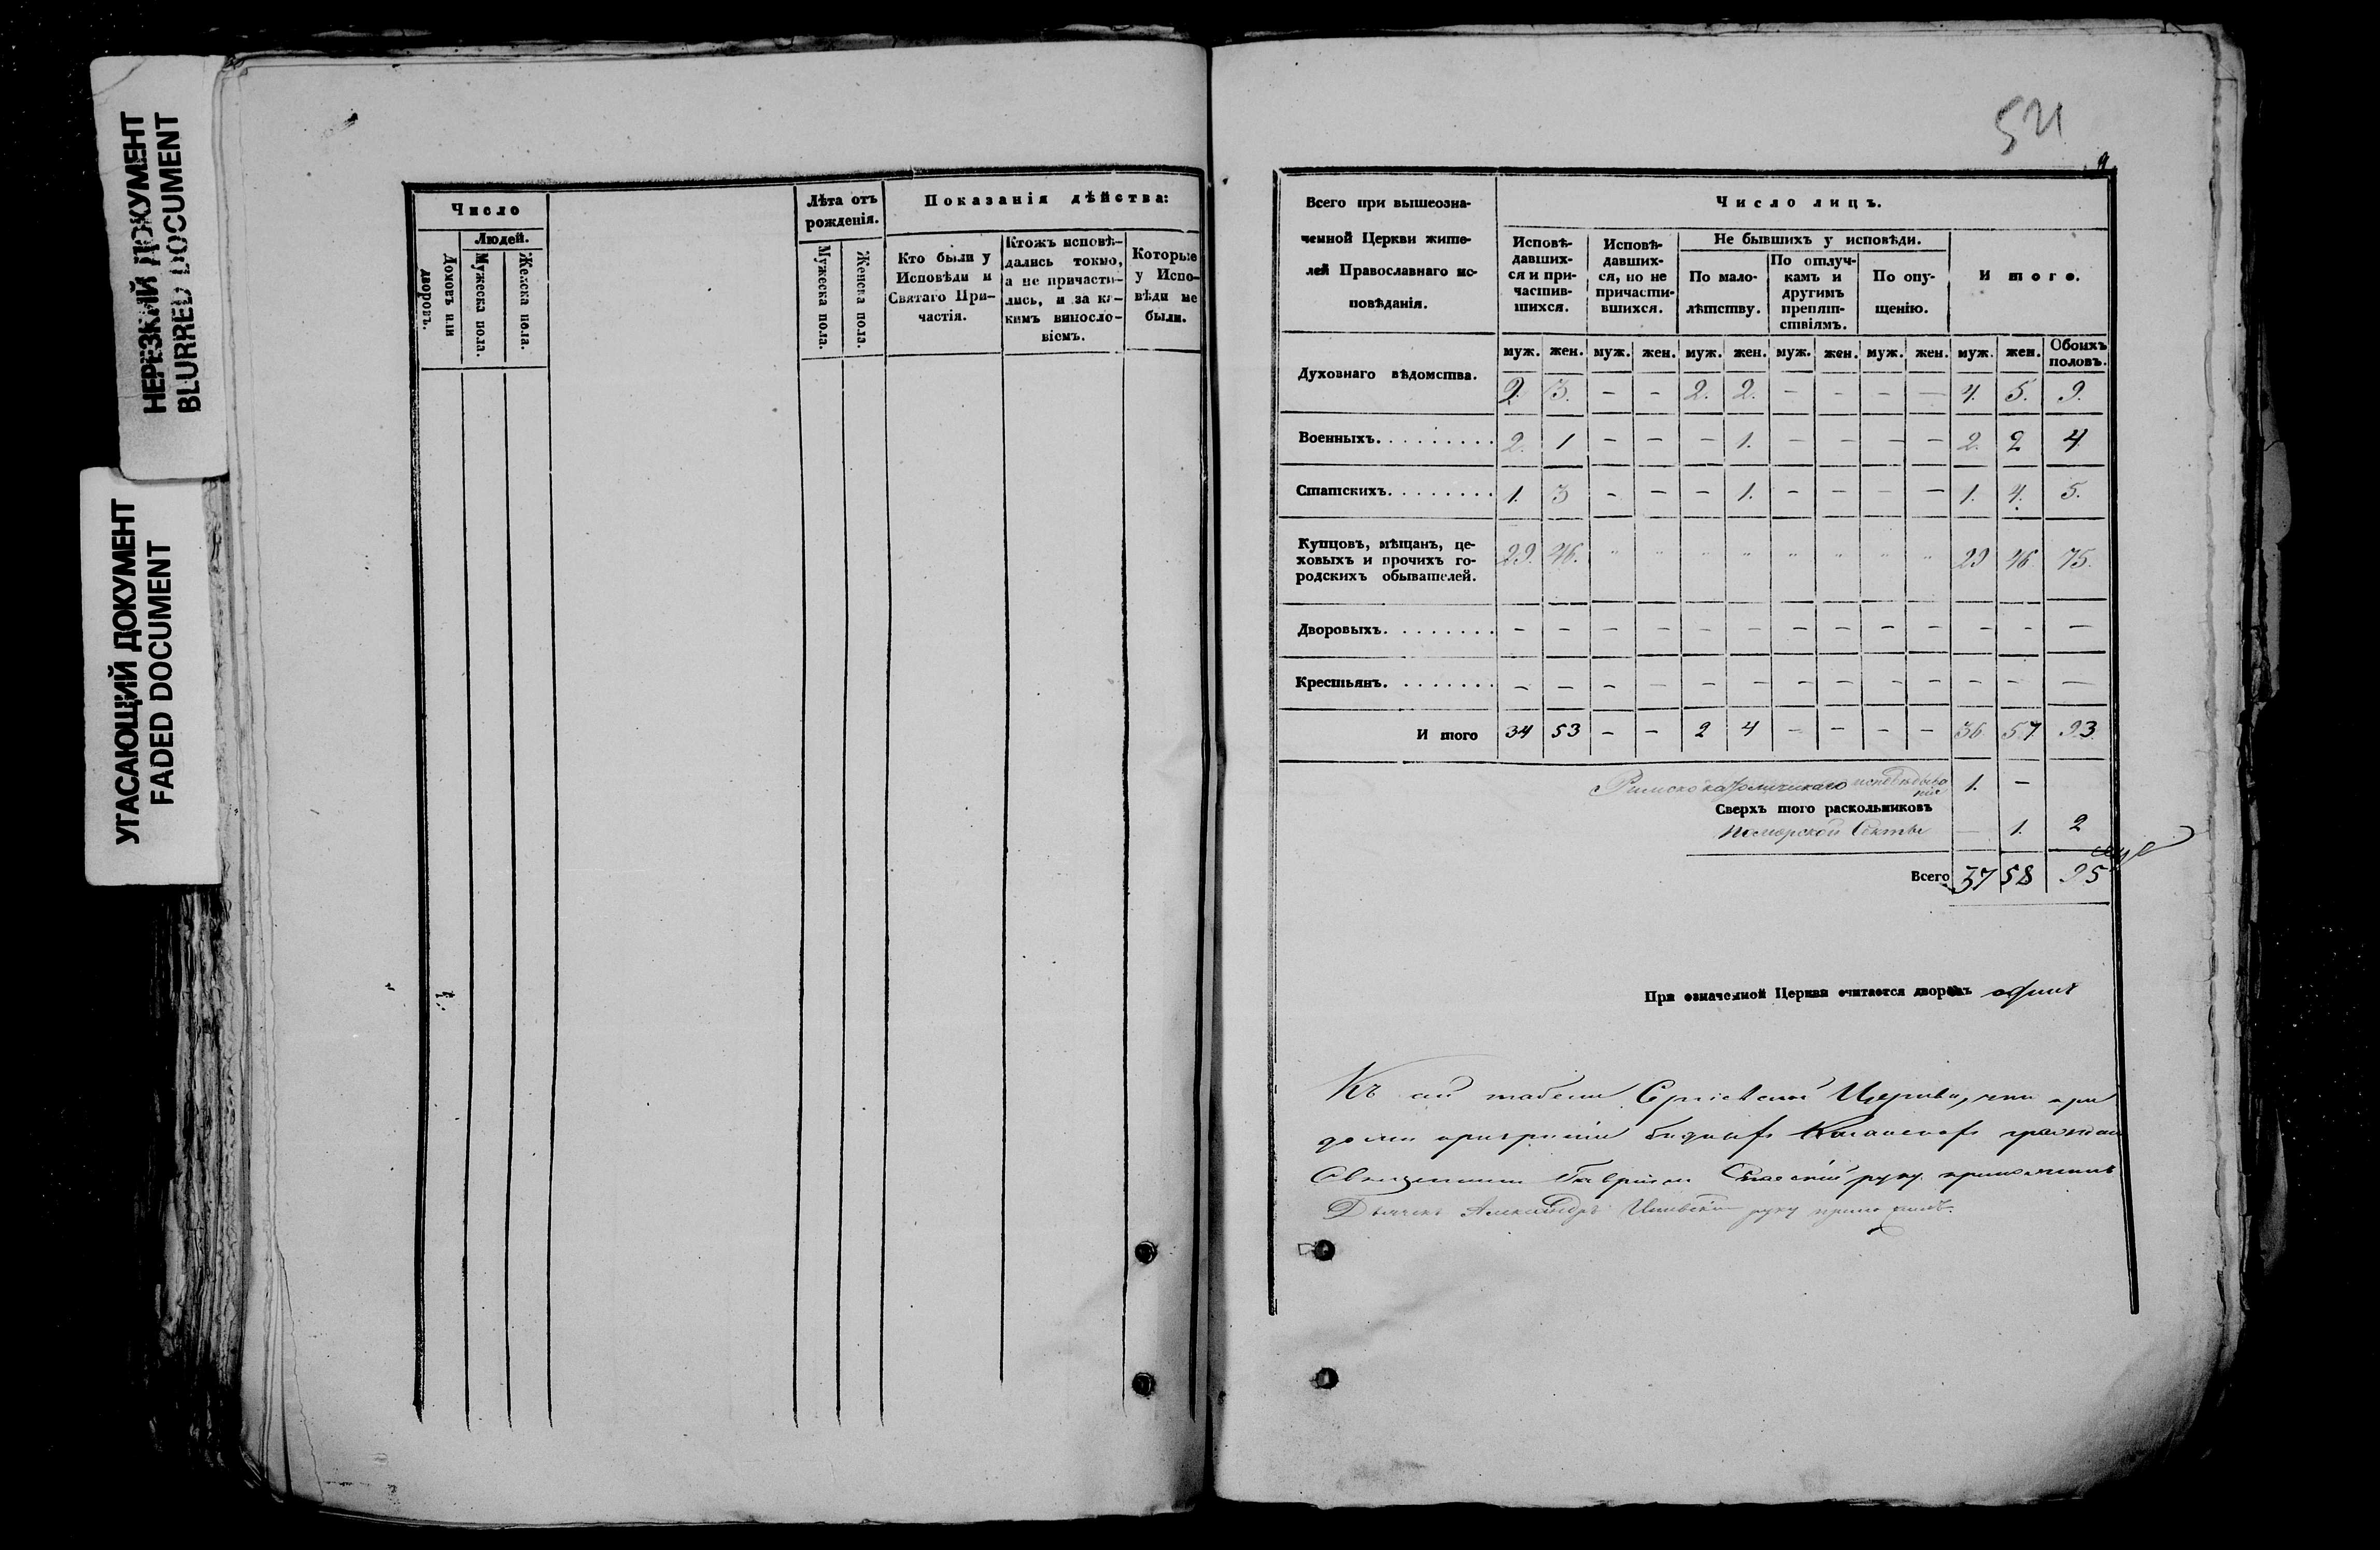 НЕРЕЗКИЙ ДОКУМЕНТ
BLURRED DOCUMENT
УГАСАЮЩИЙ ДОКУМЕНТ
FADED DOCUMENT
Число
Домовъ или дворовъ.
Людей.
Мужеска пола.
Женска пола.
Лѣта отъ рожденія.
Мужеска пола.
Женска пола.
Показанія дѣйства:
Кто были у
Исповѣди и
Святаго При-
частія.
Ктожъ исповѣ-
дались токмо,
а не причасти-
лись, и за ка-
кимъ винсло-
віемъ.
Которые
у Испо-
вѣди не
были.
521
9
Всего при вышеозна-
ченной Церкви жите-
лей Православнаго ис-
повѣданія.
Число лицъ.
Исповѣ-
давших-
ся и при-
частив-
шихся.
Исповѣ-
давших-
ся, но не
причасти-
вшихся.
Не бывшихъ у исповѣди.
По мало-
лѣтству.
По отлуч-
камъ и
другимъ
препят-
ствіямъ.
По опу-
щенію.
И того.
муж. жен. муж. жен. муж. жен. муж. жен. муж. жен. муж. жен. Обоихъ половъ.
Духовнаго вѣдомства. 2. 3. – – 2. 2. – – – – 4. 5. 9.
Военныхъ. 2. 1 – – – 1. – – – – 2. 2 4
Статскихъ. 1. 3 – – – 1. – – – – 1. 4. 5.
Купцовъ, мѣщанъ, це-
ховыхъ и прочихъ го-
родскихъ обывателей. 29. 46. " " " " " " " " 29 46 75.
Дворовыхъ. – – – – – – – – – – – – –
Крестьянъ. – – – – – – – – – – – – –
И того 34 53 – – 2 4 – – – – 36 57 93.
Римско католическаго исповѣданія 1. –
Сверхъ того раскольниковъ
Поморской Секты – 1. 2
Всего 37 58 95
При означенной Церкви считается дворовъ одинъ
Къ сей табели Сергіевской Церкви, что при
домѣ призрѣнія бѣдныхъ гражданъ
Священникъ Гавріилъ Спасскій руку приложилъ
Дьячекъ Александръ руку приложилъ.